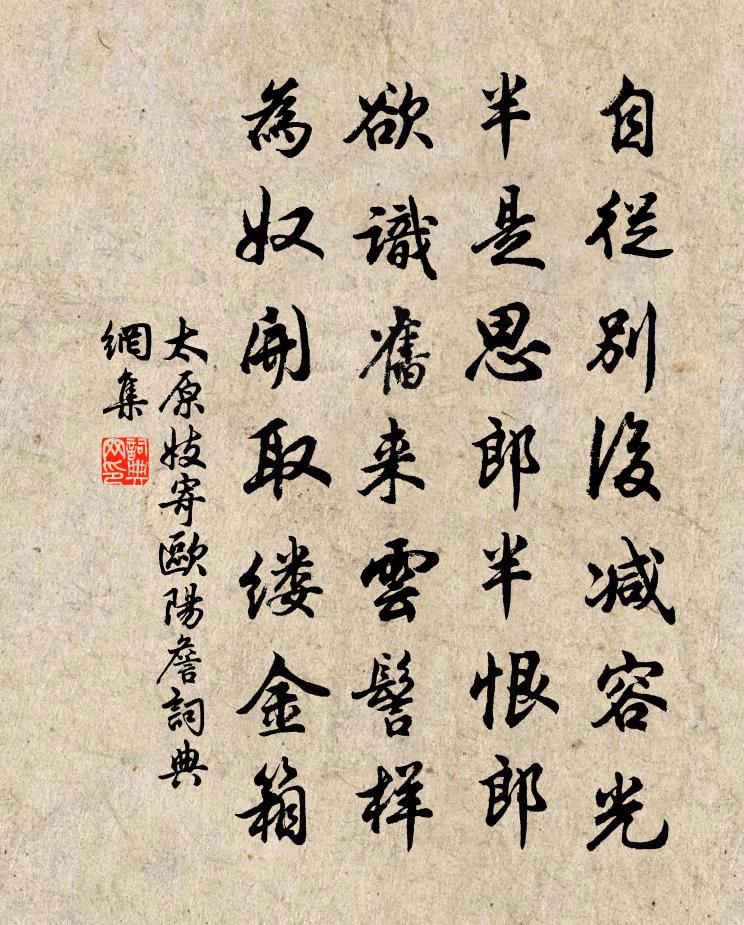 自從別後减容光
半是思郎半恨郎
欲識舊来雲髻樣
為奴開取缕金箱
太原妓寄歐陽詹詞典
網集
詞典网印